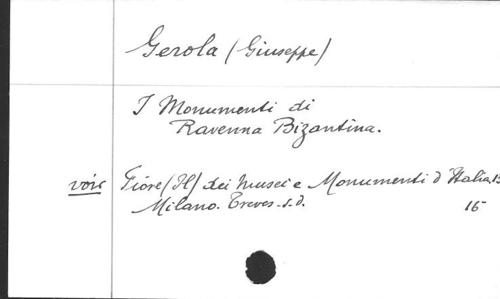 Gerola (Giuseppe)
I Monumenti di
Ravenna Bizantina.
voir Fiore (Il) dei Musei e Monumenti d'Italia
Milano. Treves. s.d. 16